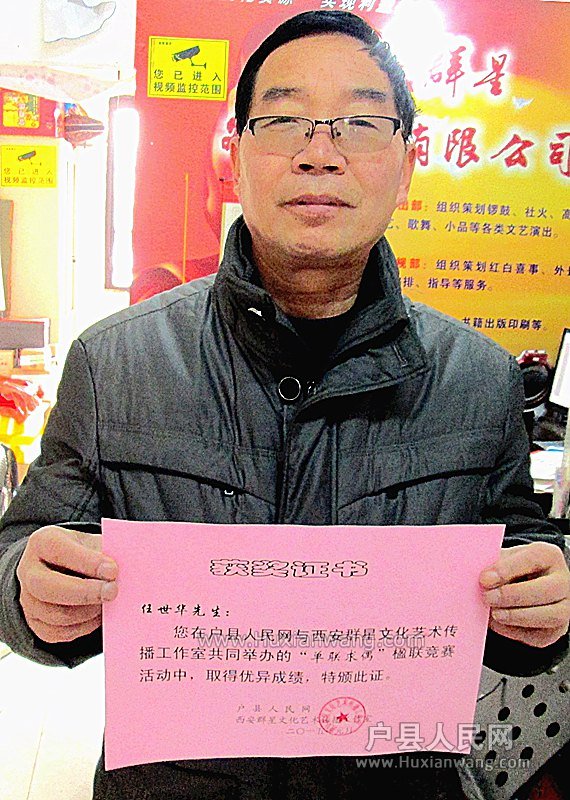 您已进入
视频监控范围
您已进入
视频监控范围
群星
有限公司
出部：组织策划锣鼓、社火、高
、歌舞、小品等各类文艺演出。
组织策划红白喜事、外
排、指导等服务。
书籍出版印刷等。
获奖证书
任世华先生：
您在户县人民网与西安群星文化艺术传
播工作室共同举办的“单联求偶”楹联竞赛
活动中，取得优异成绩，特颁此证。
户县人民网
西安群星文化艺术
二〇一
户县人民网
www.Huxianwang.com
户县人民网
www.Huxianwang.com